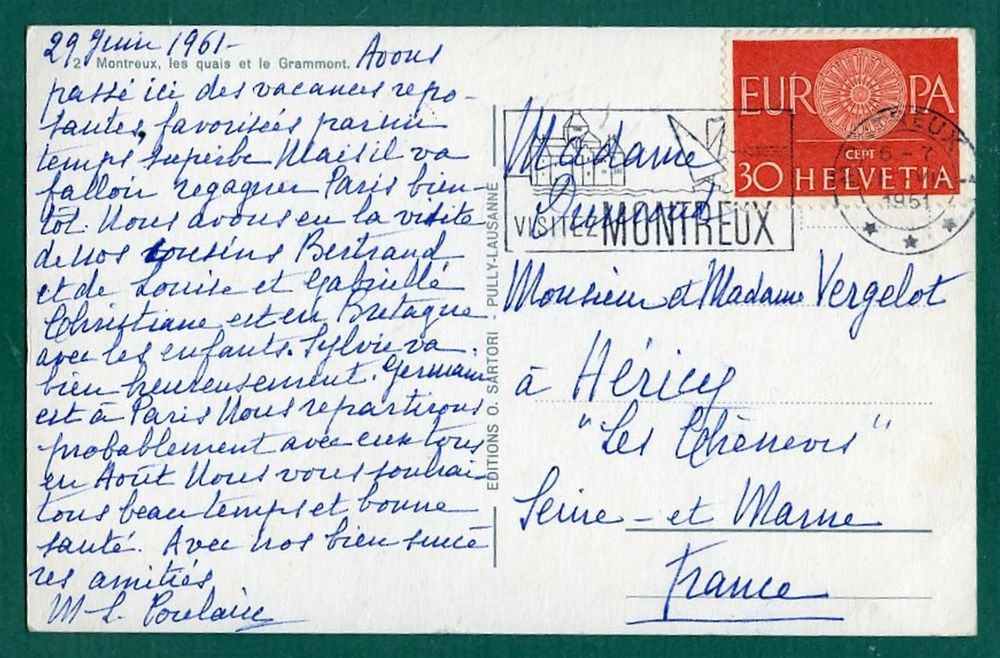 29 Juin 1961-
2 Montreux, les quais et le Grammont. Avons
passé ici des vacances repo-
santes, favorisées par un
temps superbe Mais il va
falloir regagner Paris bien-
tôt. Nous avons eu la visite
de nos cousins Bertrand
et de Louise et Gabrielle
Christiane est en Bretagne
avec les enfants. Sylvie va
bien heureusement. Germain
est à Paris Nous repartirons
probablement avec eux tous
en Août Nous vous souhai-
tons beau temps et bonne
santé. Avec nos bien sincè-
res amitiés
M-L.
EDITIONS O. SARTORI - PULLY-LAUSANNE
EUROPA
CEPT
30 HELVETIA
MONTREUX
6-7
1961
VISITEZ MONTREUX
Madame
Monsieur et Madame Vergelot
à Héricy
"Les Chènevis"
Seine-et Marne
France